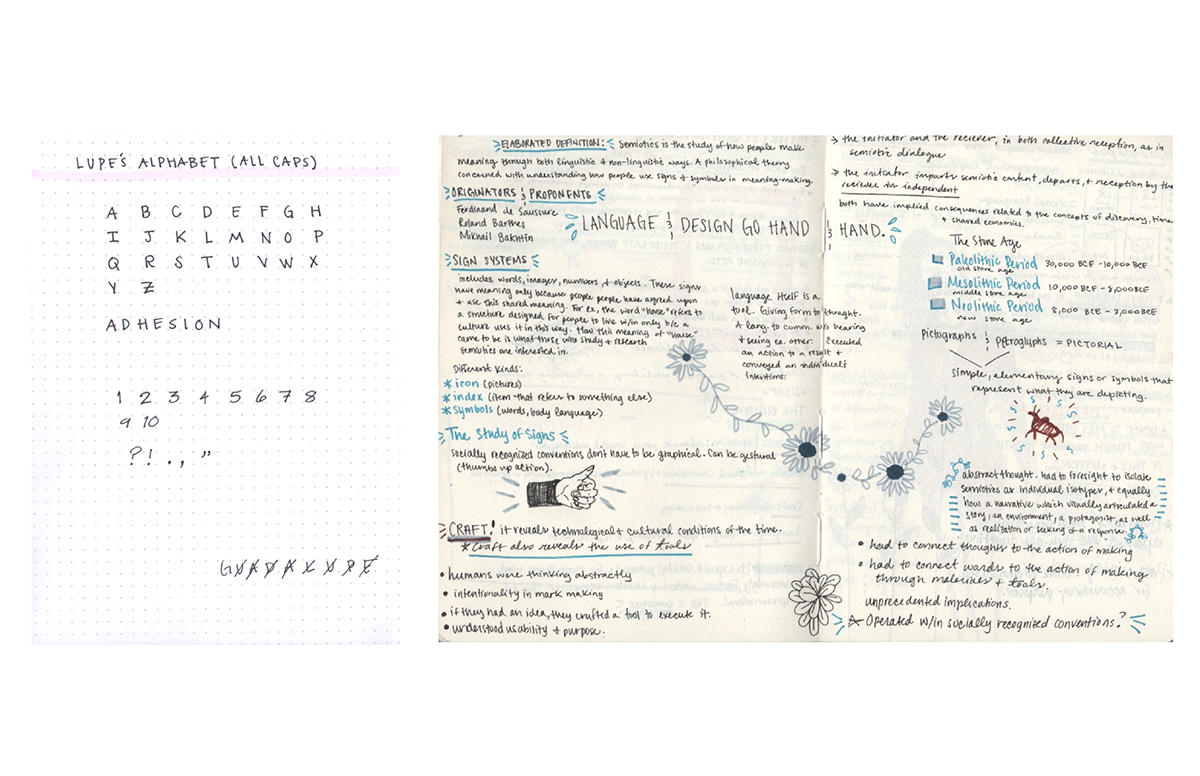 LUPE'S ALPHABET (ALL CAPS)
A B C D E F G H
I J K L M N O P
Q R S T U V W X
Y Z
ADHESION
1 2 3 4 5 6 7 8
9 10
? ! . , "
ELABORATED DEFINITION: Semiotics is the study of how people make
meaning through both linguistic + non-linguistic ways. A philosophical theory
concerned with understanding how people use signs + symbols in meaning-making.
ORIGINATORS & PROPONENTS
Ferdinand de Saussure
Roland Barthes
Mikhail Bakhtin
LANGUAGE & DESIGN GO HAND & HAND.
SIGN SYSTEMS
includes words, images, numbers, + objects. These signs
have meaning only because people people have agreed upon
+ use this shared meaning. For ex, the word "house" refers to
a structure designed for people to live w/in only b/c a
culture uses it in this way. How this meaning of "house"
came to be is what those who study + research
semiotics are interested in.
Different kinds:
* icon (pictures)
* index (item that refers to something else)
* symbols (words, body language)
language itself is a
tool. Giving form to thought.
A lang. to comm. w/o hearing
+ seeing ea. other. Executed
an action to a result +
conveyed an individual's
intentions.
The Study of Signs
socially recognized conventions don't have to be graphical. Can be gestural
(thumbs up action).
CRAFT! it reveals technological + cultural conditions of the time.
* Craft also reveals the use of tools
• humans were thinking abstractly
• intentionality in mark making
• if they had an idea, they crafted a tool to execute it.
• understood usability + purpose.
→ the initiator and the reciever, in both collective reception, as in
semiotic dialogue
→ the initiator imparts semiotic content, departs, + reception by the
reciever is independent
both have implied consequences related to the concepts of discovery, time
+ shared economics.
The Stone Age
Paleolithic Period 30,000 BCE - 10,000 BCE
old stone age
Mesolithic Period 10,000 BCE - 8,000 BCE
middle stone age
Neolithic Period 8,000 BCE - 3,000 BCE
new stone age
Pictographs & Petroglyphs = PICTORIAL
simple, elementary signs or symbols that
represent what they are depicting.
abstract thought. had to foresight to isolate
semiotics as individual isotypes, + equally
how a narrative which visually articulated a
story, an environment, a protagonist, as well
as realization or seeking of a response.
• had to connect thoughts to the action of making
• had to connect words to the action of making
through materials + tools.
unprecedented implications.
Operated w/in socially recognized conventions?